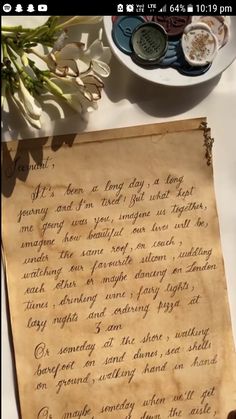 LTE 64% 10:19 pm
Servant,
It's been a long day, a long
journey and I'm tired! But what kept
me going was you, imagine us together,
imagine how beautiful our lives will be,
under the same roof, on couch,
watching our favourite sitcom, cuddling
each other or maybe dancing on London
times, drinking wine, fairy lights,
lazy nights and ordering pizza at
3 am
Or someday at the shore, walking
barefoot on sand dunes, sea shells
on ground, walking hand in hand
Or maybe someday when we'll get
down the aisle,